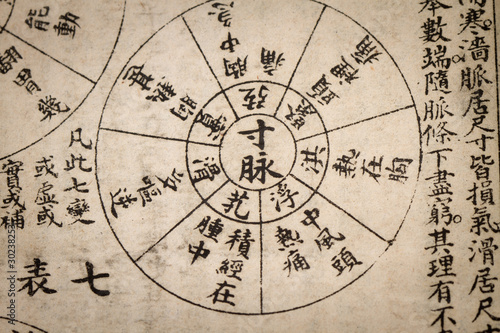 寒濇脈居尺寸皆損氣滑居尺
本數端隨脈條下盡窮其理有不
寸脈
弦
胸中急痛
緊
洪
熱在胸
浮
中風頭
熱痛
芤
積經在
腫中
滑
實
七表
凡此七變
或虛或
實或補
能動
翻胃